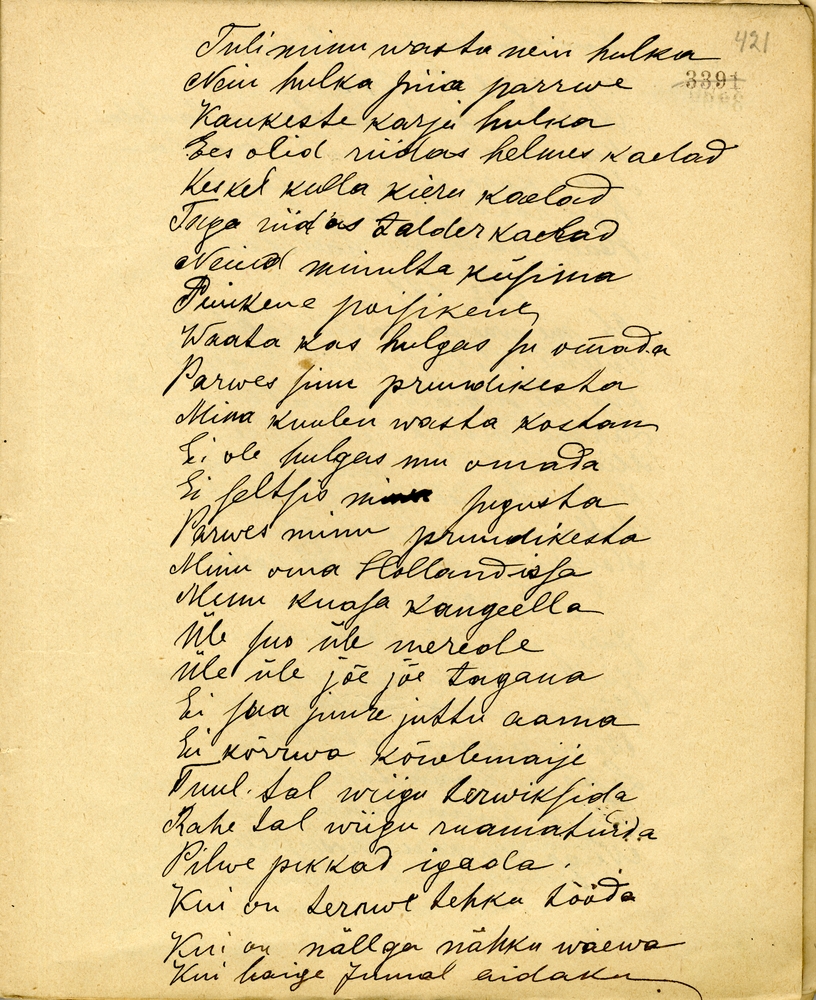 421
3391
Tuli minu wasta nein hulka
Nein hulka piia parrwe
Kaukeste karja hulka
Ees olid riidas helmes kaelad
Keskel kulla kieru kaelad
Taga riidas talder kaelad
Neiud minulta küsima
Peiukene poisikene
Waata kas hulgas su omada
Parwes sinu pruudikesta
Mina kuulen wasta kostan
Ei ole hulgas mu omada
Ei seltsis sugusta
Parwes minu pruudikesta
Minu oma Hollandissa
Minu kuasa kangeella
Üle suo üle mereole
Üle üle jõe jõe tagana
Ei saa juure juttu aama
Ei kõrrwa kõwelemaije
Tuul tal wiigu terwiksida
Rahe tal wiigu raamatuida
Pilwe pikkad igada.
Kui on terwe tehku tööda
Kui on nällga nähku waewa
Kui haige Jumal aidaku